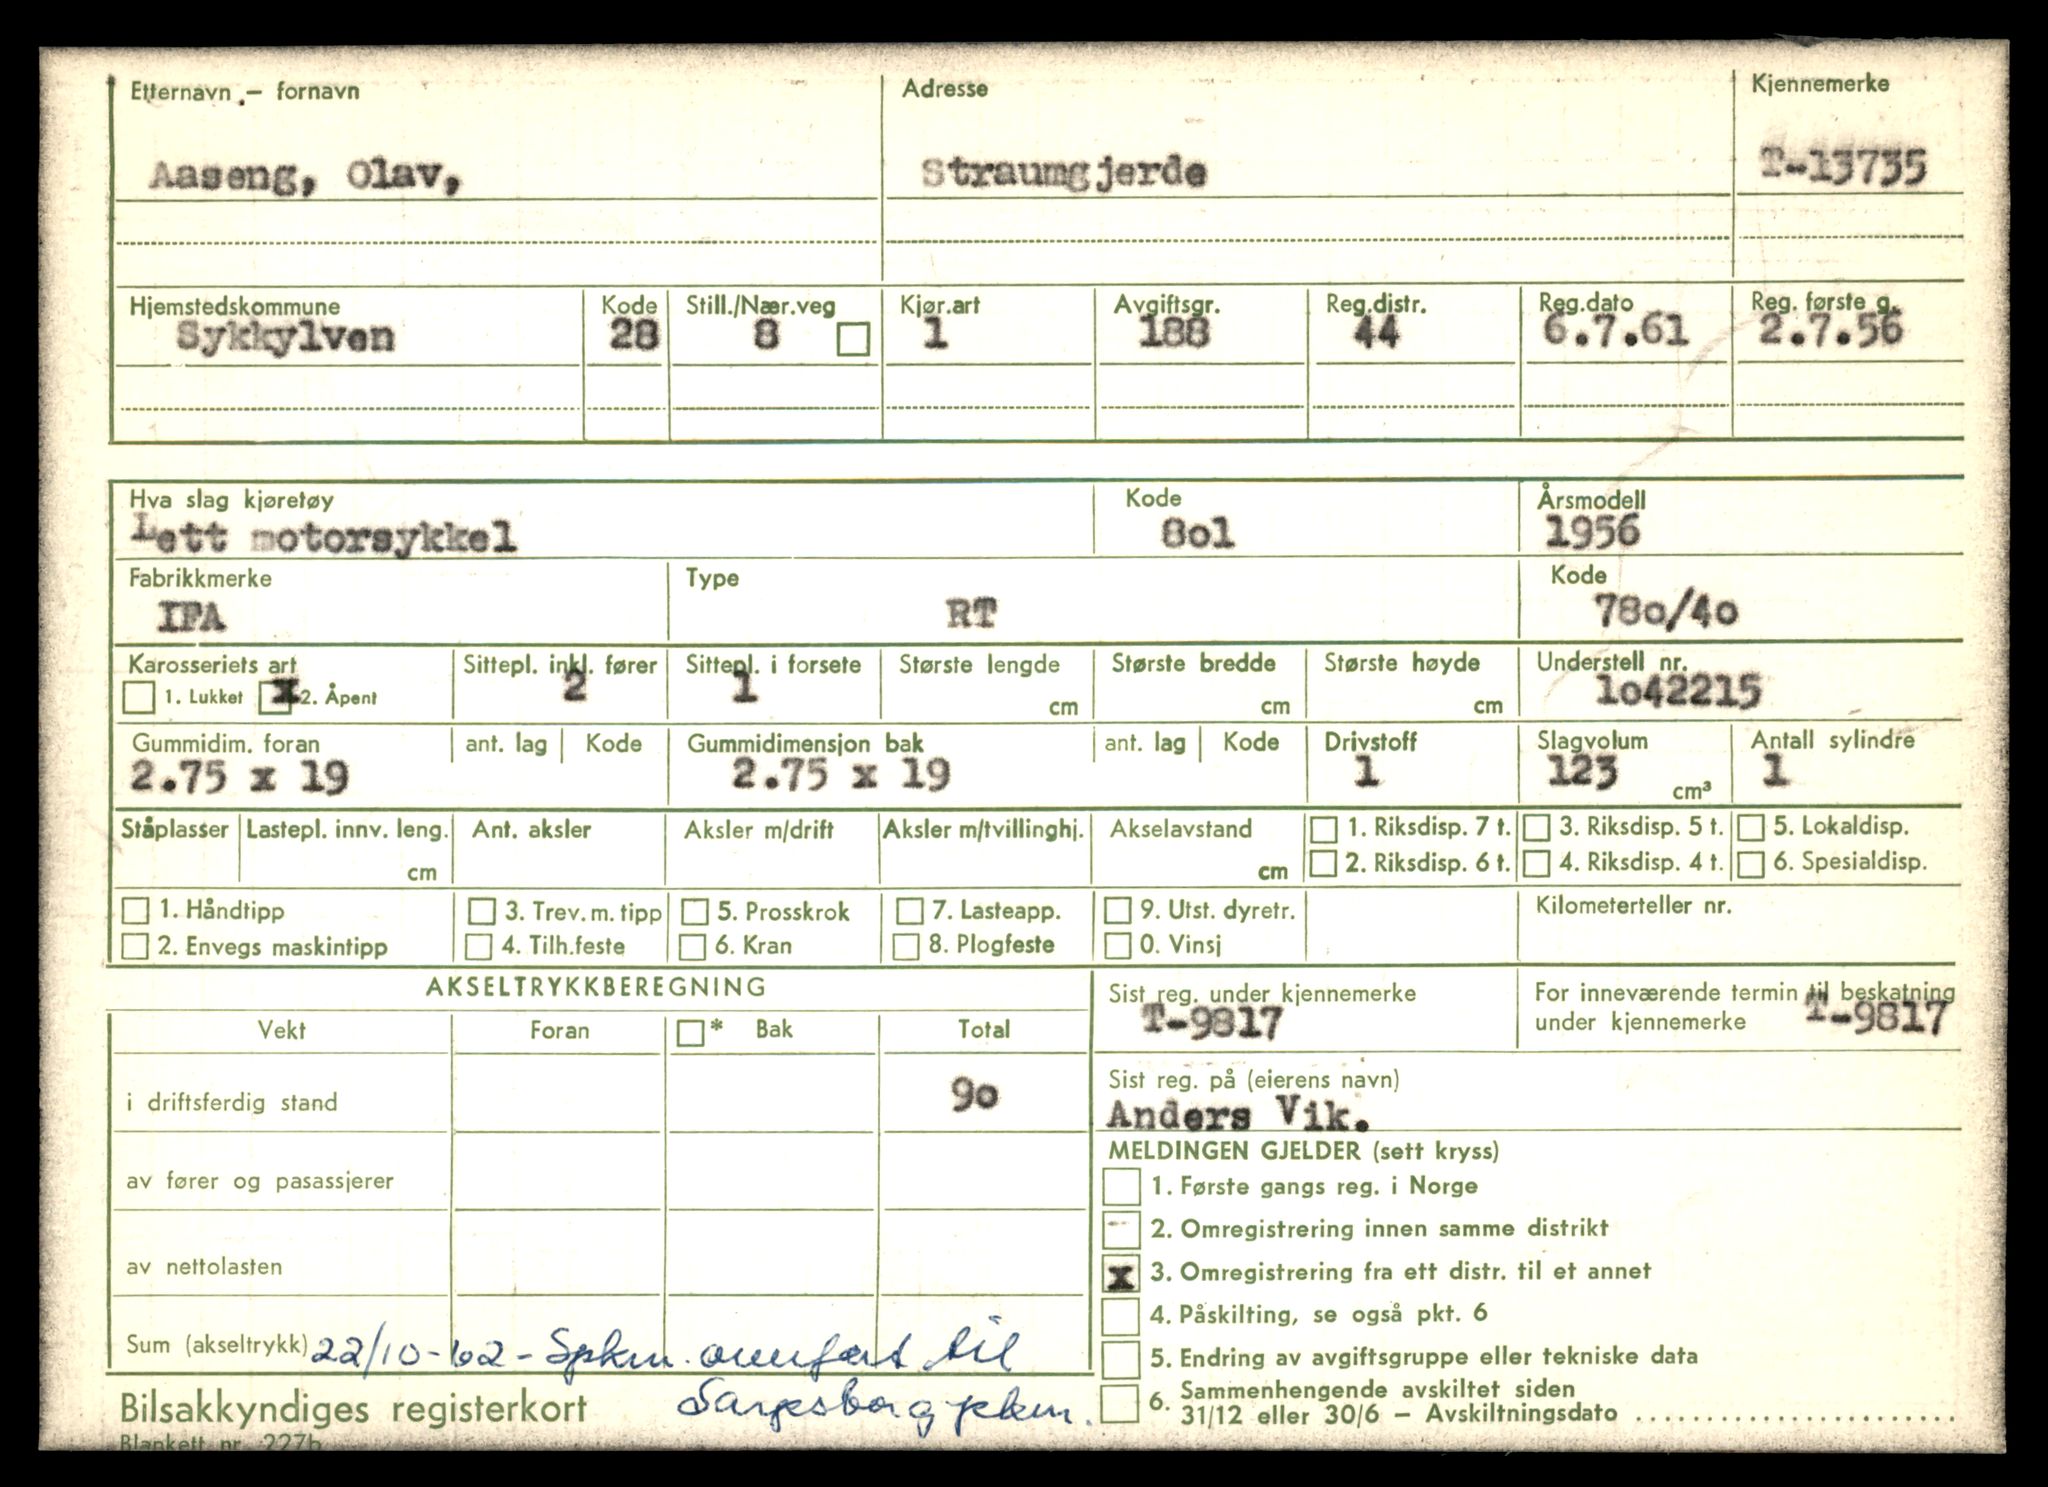 Etternavn - fornavn Adresse Kjennemerke
Aaseng, Olav, Straumgjerde T-13735
Hjemstedskommune Kode Still./Nær.veg Kjør.art Avgiftsgr. Reg.distr. Reg.dato Reg. første g.
Sykkylven 28 8 1 188 44 6.7.61 2.7.56
Hva slag kjøretøy Kode Årsmodell
Lett motorsykkel 8o1 1956
Fabrikkmerke Type Kode
IFA RT 78o/4o
Karosseriets art Sittepl. inkl. fører Sittepl. i forsete Største lengde Største bredde Største høyde Understell nr.
1. Lukket x 2. Åpent 2 1 cm cm cm 1o42215
Gummidim. foran ant. lag Kode Gummidimensjon bak ant. lag Kode Drivstoff Slagvolum Antall sylindre
2.75 x 19 2.75 x 19 1 123 cm³ 1
Ståplasser Lastepl. innv. leng. Ant. aksler Aksler m/drift Aksler m/tvillinghj. Akselavstand 1. Riksdisp. 7 t. 3. Riksdisp. 5 t. 5. Lokaldisp.
cm cm 2. Riksdisp. 6 t. 4. Riksdisp. 4 t. 6. Spesialdisp.
1. Håndtipp 3. Trev. m. tipp 5. Prosskrok 7. Lasteapp. 9. Utst. dyretr. Kilometerteller nr.
2. Envegs maskintipp 4. Tilh.feste 6. Kran 8. Plogfeste 0. Vinsj
AKSELTRYKKBEREGNING
Sist reg. under kjennemerke For inneværende termin til beskatning
under kjennemerke
T-9817 T-9817
Vekt Foran * Bak Total
Sist reg. på (eierens navn)
i driftsferdig stand 9o
Anders Vik.
MELDINGEN GJELDER (sett kryss)
av fører og pasassjerer
1. Første gangs reg. i Norge
2. Omregistrering innen samme distrikt
av nettolasten
x 3. Omregistrering fra ett distr. til et annet
4. Påskilting, se også pkt. 6
Sum (akseltrykk) 22/10-62 - Spkm. overført til
5. Endring av avgiftsgruppe eller tekniske data
Sarpsborg pkm.
6. Sammenhengende avskiltet siden
31/12 eller 30/6 - Avskiltningsdato
Bilsakkyndiges registerkort
Blankett nr. 227b